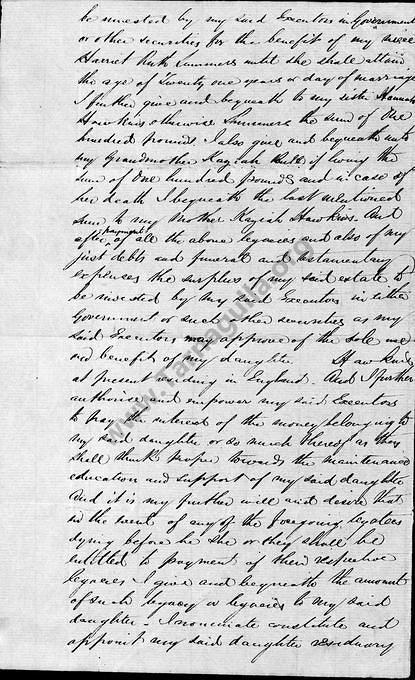 be invested by my said Executors in Government
or other securities for the benefit of my niece
Harriet Ruth Summers until she shall attain
the age of Twenty one years or day of marriage
I further give and bequeath to my sister Hannah
Hawkins otherwise Summers the sum of One
hundred pounds. I also give and bequeath unto
my Grandmother Kaziah Ruth if living the
sum of One hundred pounds and in case of
her death I bequeath the last mentioned
sum to my Mother Kaziah Hawkins. And
after payment of all the above legacies and also of my
just debts and funeral and testamentary
expenses the surplus of my said estate to
be invested by my said Executors in either
Government or such other securities as my
said Executors may approve of the sole use
and benefit of my daughter Hawkins
at present residing in England. And I further
authorise and empower my said Executors
to pay the interest of the money belonging to
my said daughter or so much thereof as they
shall think proper towards the maintenance
education and support of my said daughter
And it is my further will and desire that
in the event of any of the foregoing legatees
dying before he she or they shall be
entitled to payment of their respective
legacies I give and bequeath the amount
of such legacy or legacies to my said
daughter - I nominate constitute and
appoint my said daughter residuary